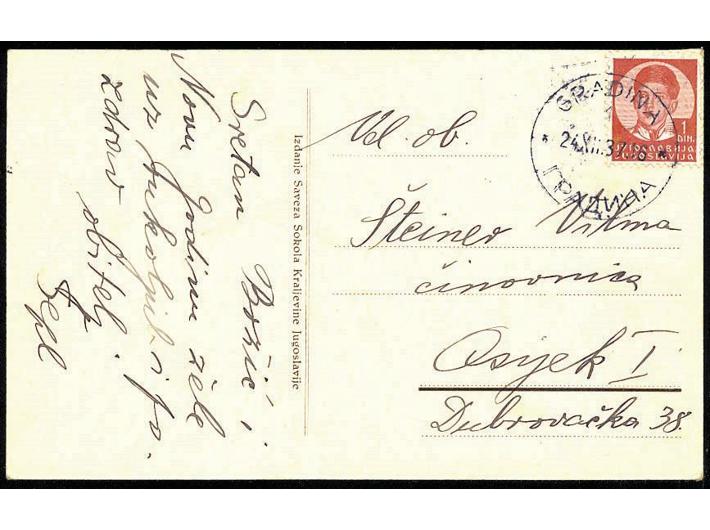 Sretan Božić i
Novu Godinu žele
uz
zdravo obitelj
Sepl
Izdanje Saveza Sokola Kraljevine Jugoslavije
GRADINA
24.XII.37
ГРАДИНА
1
DIN.
ЈУГОСЛАВИЈА
JUGOSLAVIJA
Vel. ob.
Šteiner Vilma
činovnica
Osjek I.
Dubrovačka 38.